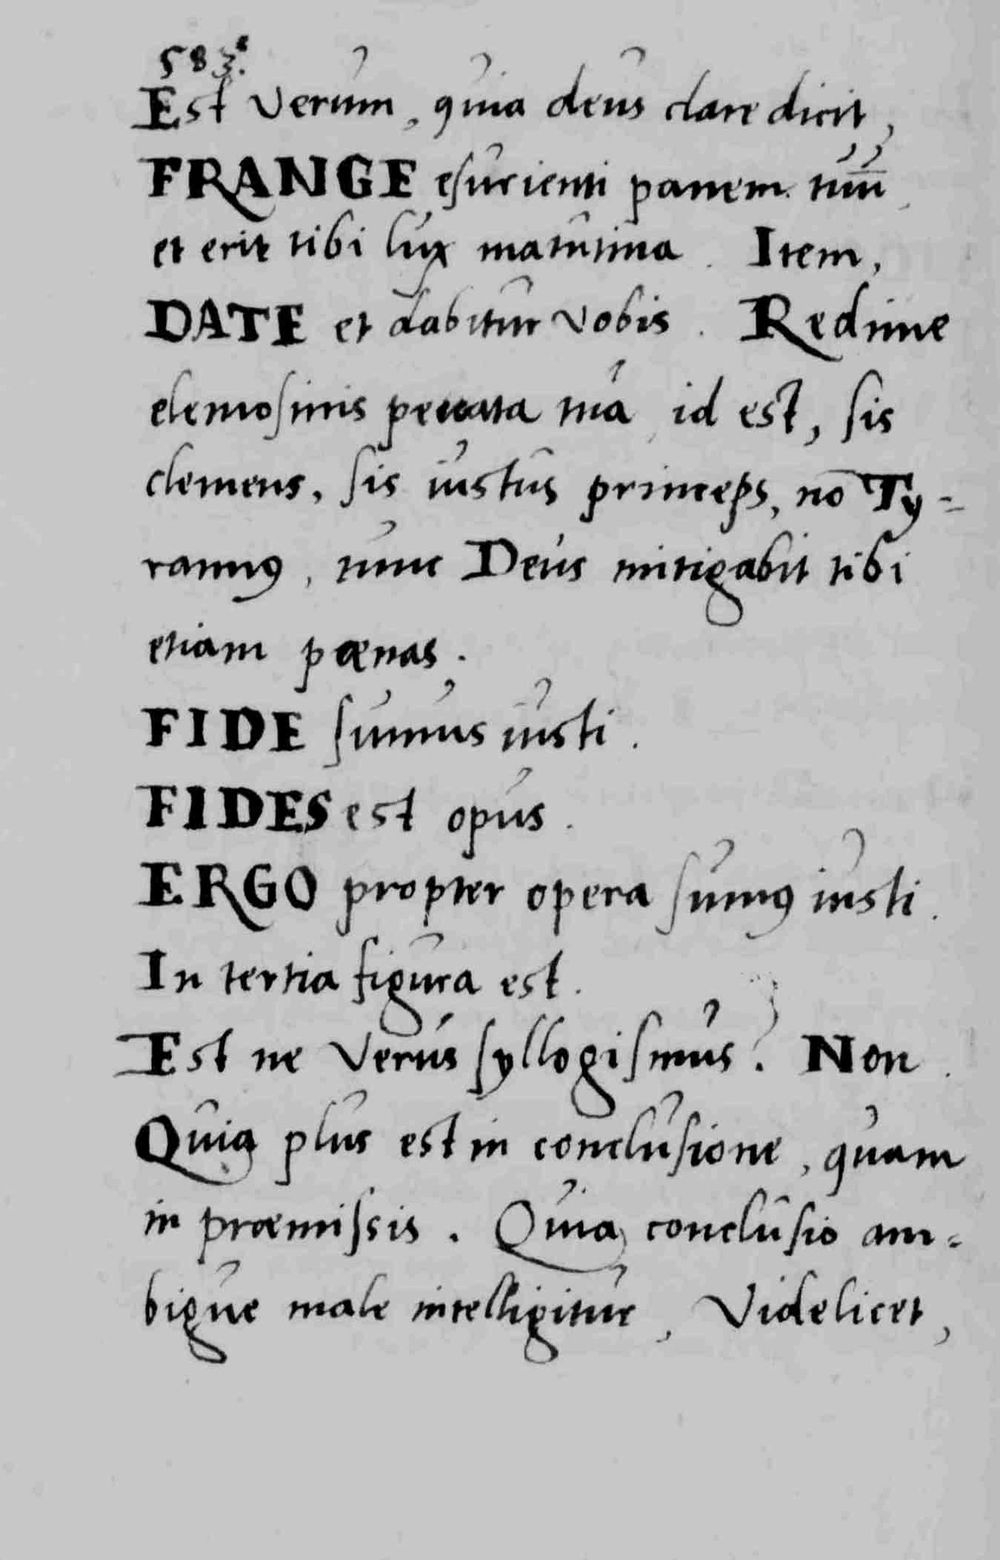 583.
Est verum, quia deus clare dicit,
FRANGE esurienti panem tuũ
et erit tibi lux matutina. Item,
DATE et dabitur vobis. Redime
elemosinis peccata tua, id est, sis
clemens, sis iustus princeps, nō Ty=
rannus, tunc Deus mitigabit tibi
etiam pœnas.
FIDE sumus iusti.
FIDES est opus.
ERGO propter opera sumus iusti.
In tertia figura est.
Est ne verus syllogismus? Non.
Quia plus est in conclusione, quam
in præmissis. Quia conclusio am=
bigue male intelligitur, Videlicet,